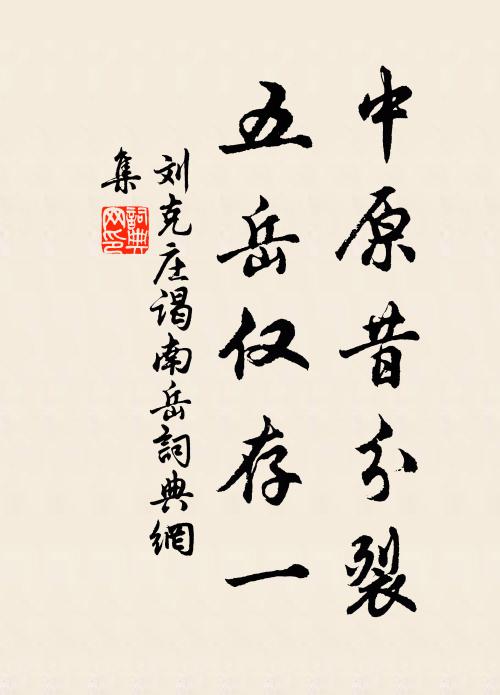 中原昔分裂
五岳仅存一
刘克庄谒南岳詞典網
集
詞典
网印